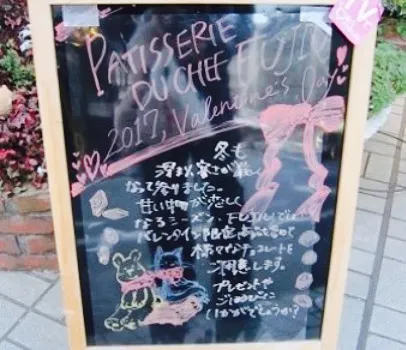 PATISSERIE
DU CHEF FUJIU
2017, Valentine's Day
冬も
深まり寒さが厳しく
なって参りました。
甘い物が恋しく
なるシーズン・FUJIUでは
バレンタイン限定
様々なチョコレートを
ご用意します。
プレゼントや
ご自分に
いかがでしょうか?